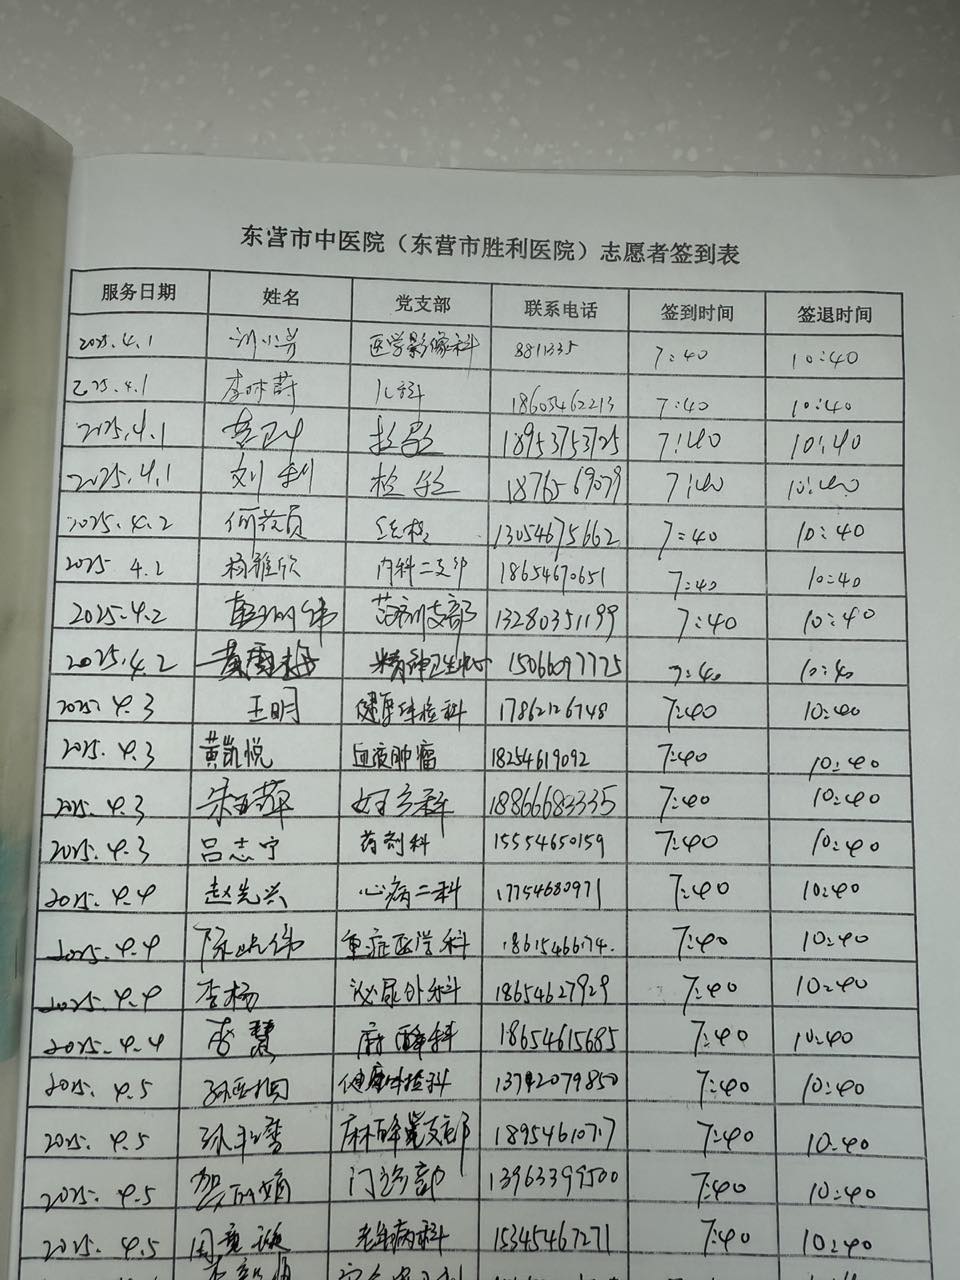 东营市中医院（东营市胜利医院）志愿者签到表
服务日期 姓名 党支部 联系电话 签到时间 签退时间
2025.4.1 医学影像科 8811335 7:40 10:40
2025.4.1 儿科 18605462213 7:40 10:40
2025.4.1 检验 18953753725 7:40 10:40
2025.4.1 刘利 检验 1876569079 7:40 10:40
2025.4.2 13054675662 7:40 10:40
2025 4.2 杨雅欣 内科二支部 18654670651 7:40 10:40
2025.4.2 药剂支部 13280351199 7:40 10:40
2025.4.2 黄雪梅 精神卫生中心 15066097775 7:40 10:40
2025.4.3 王明 健康体检科 17862126748 7:40 10:40
2025.4.3 黄凯悦 血液肿瘤 18254619092 7:40 10:40
2025.4.3 妇产科 18866683335 7:40 10:40
2025.4.3 吕志宁 药剂科 15554650159 7:40 10:40
2025.4.4 赵先兴 心病二科 17754680971 7:40 10:40
2025.4.4 重症医学科 7:40 10:40
2025.4.4 李杨 泌尿外科 18654627929 7:40 10:40
2025.4.4 李慧 麻醉科 18654615685 7:40 10:40
2025.4.5 健康体检科 13792079850 7:40 10:40
2025.4.5 麻醉党支部 7:40 10:40
2025.4.5 门诊部 13963399500 7:40 10:40
2025.4.5 老年病科 15345467271 7:40 10:40